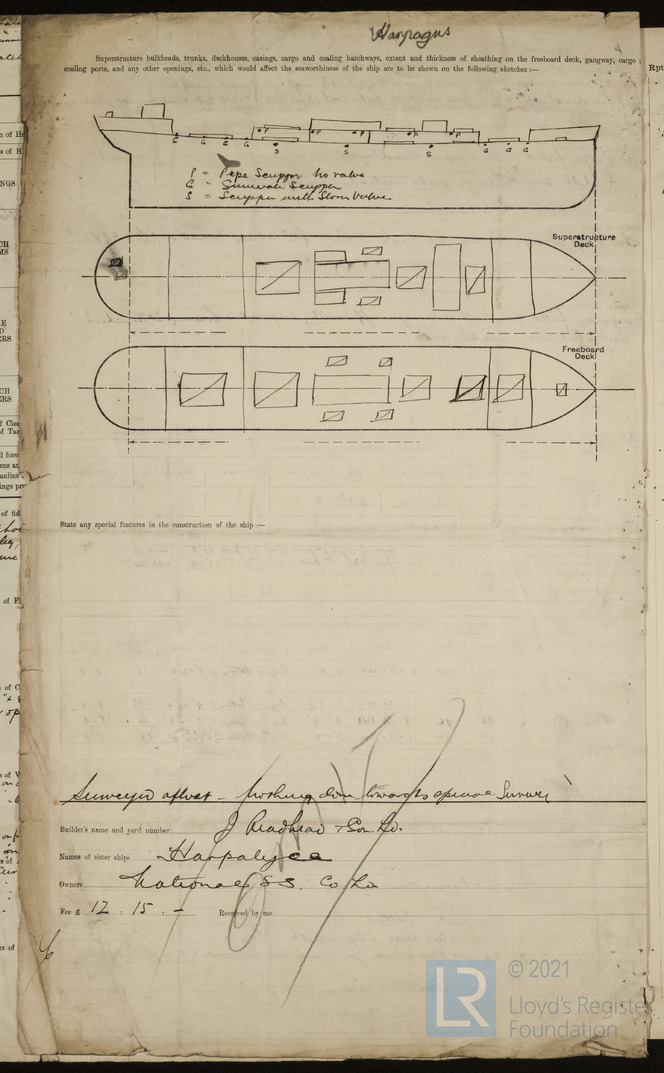 Harpagus
Superstructure bulkheads, trunks, deckhouses, casings, cargo and coaling hatchways, extent and thickness of sheathing on the freeboard deck, gangway, cargo
coaling ports, and any other openings, etc., which would affect the seaworthiness of the ship are to be shown on the following sketches :—
P = Pipe Scupper No valve
G = Scupper
S = Scupper with Storm Valve
Superstructure
Deck
Freeboard
Deck
State any special features in the construction of the ship :—
Surveyed afloat - Nothing done towards special Survey
Builder's name and yard number J Readhead & Son Ld.
Names of sister ships Harpalyce
Owners National S S. Co Ld
Fee £ 12 : 15 : - Received by me
© 2021
LR
Lloyd's Register
Foundation